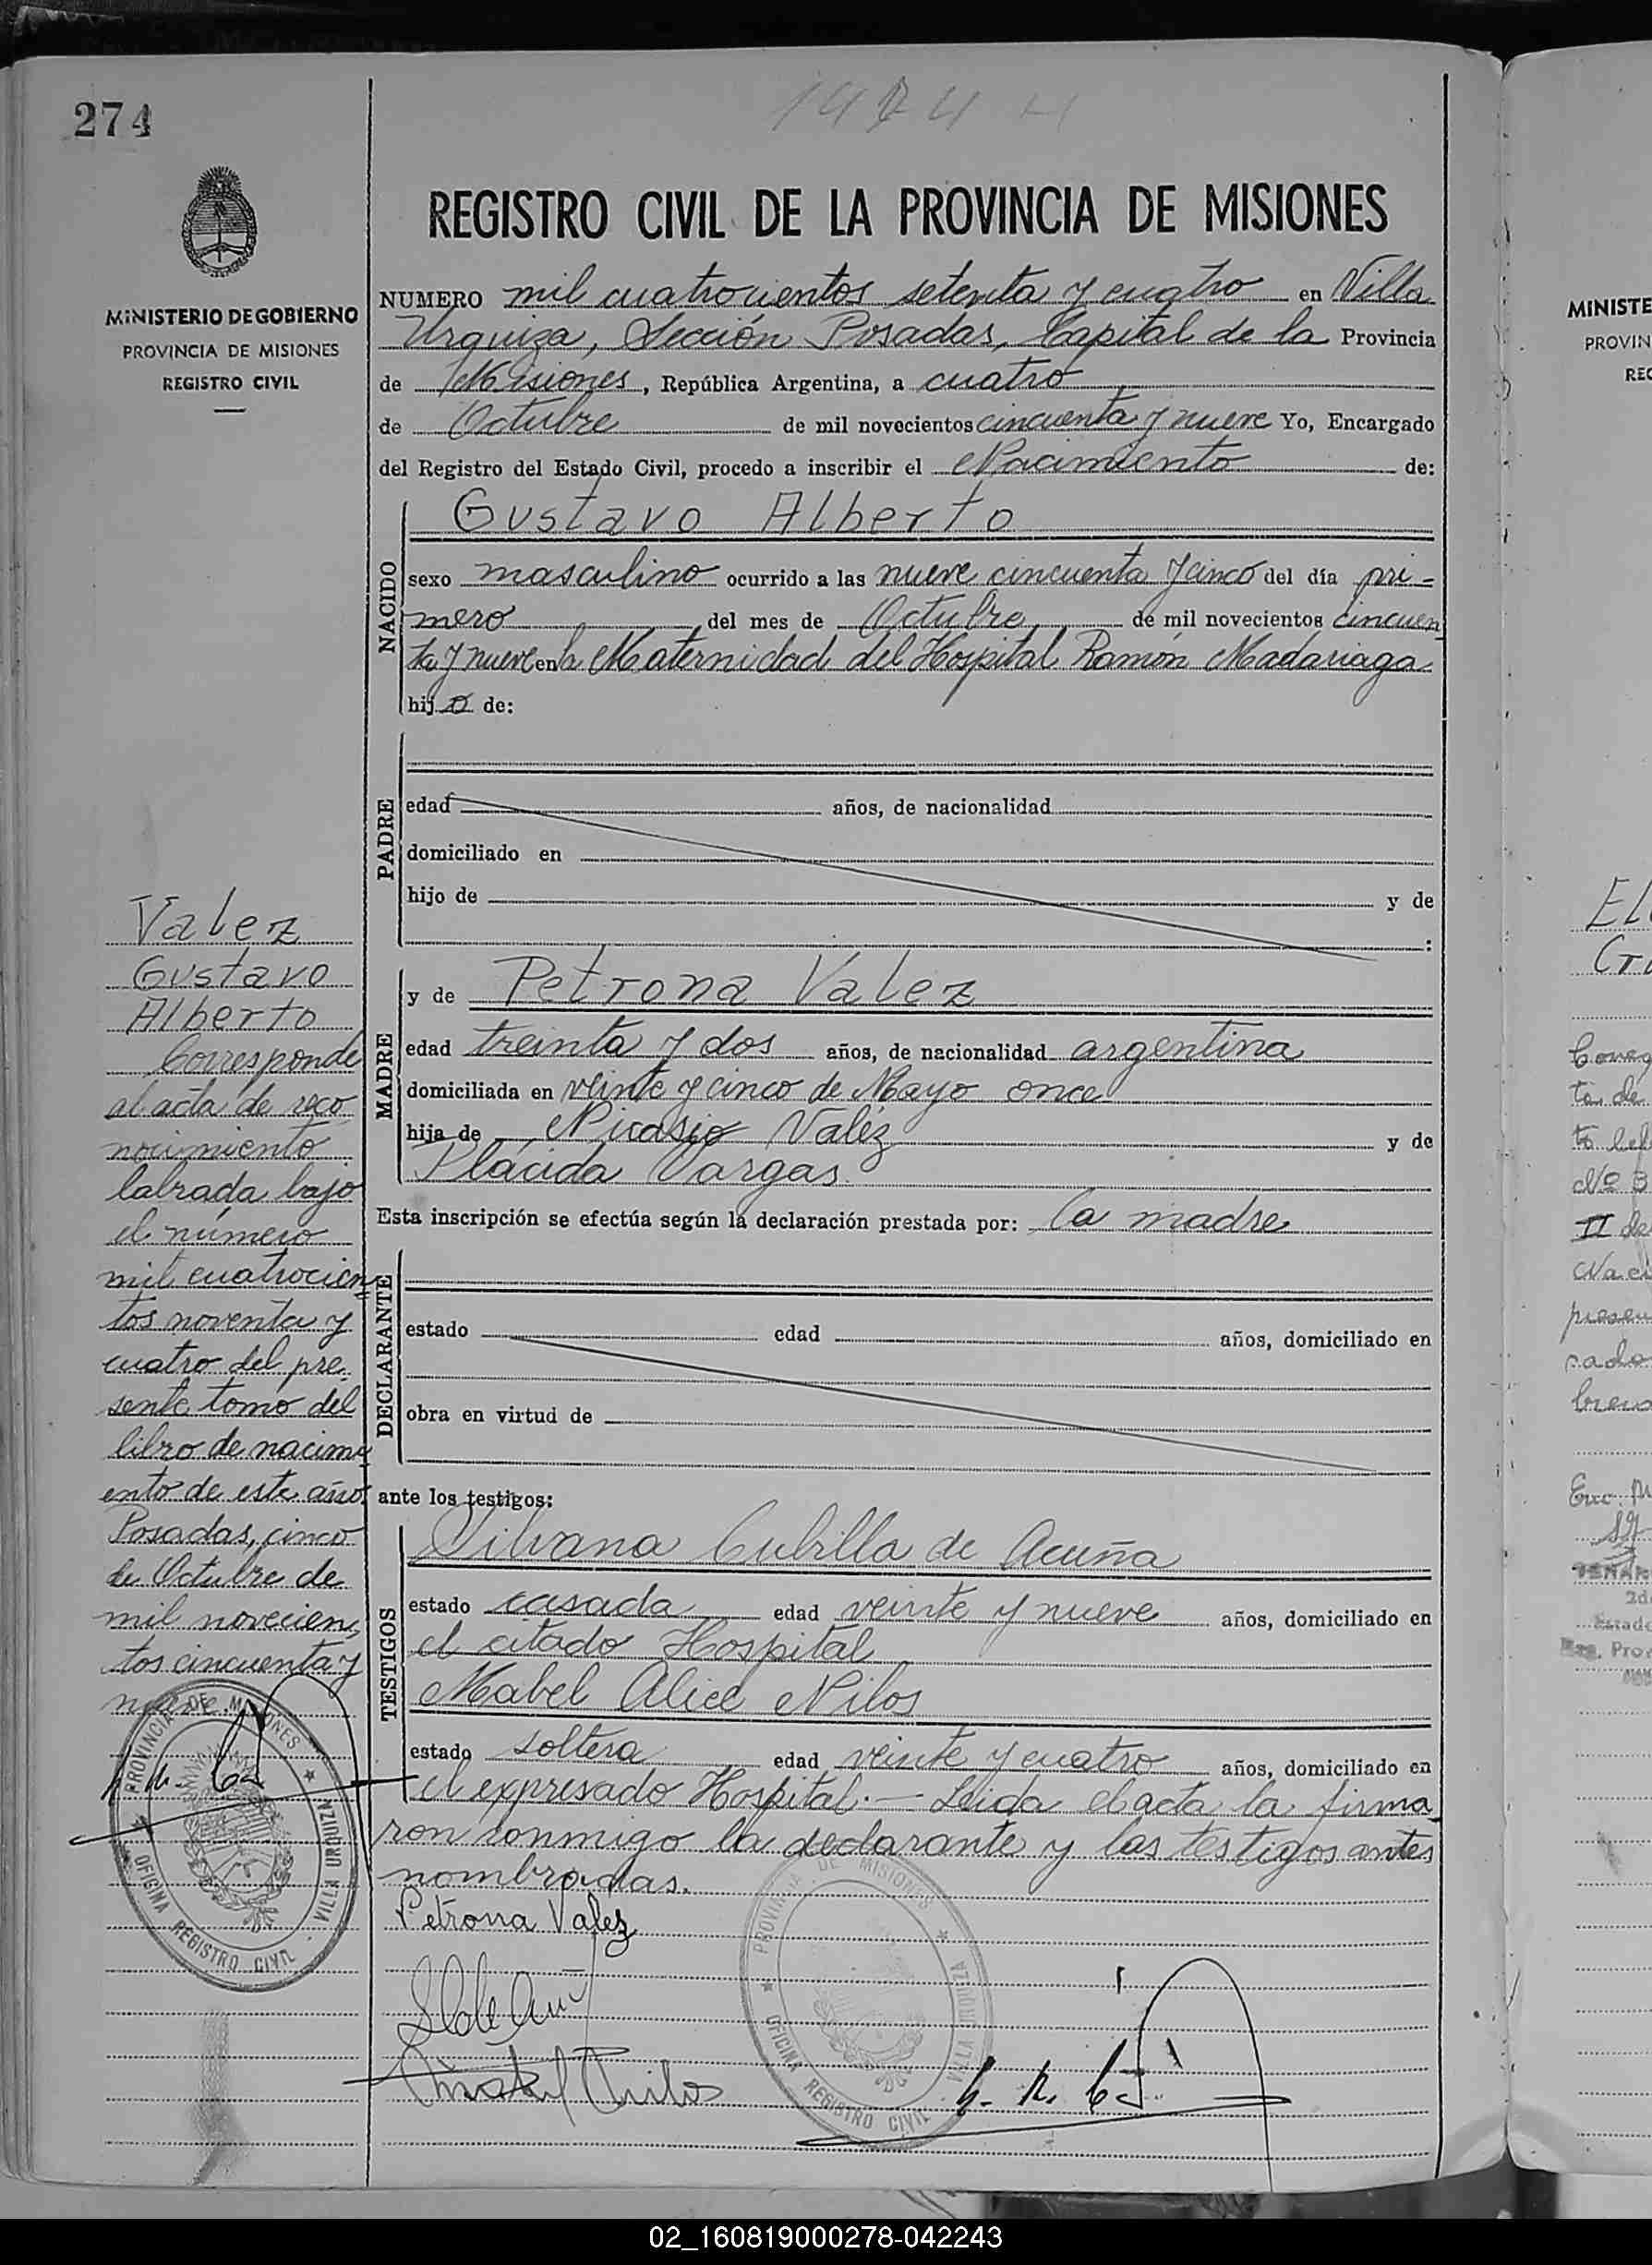 274
1474 H
MINISTERIO DE GOBIERNO
PROVINCIA DE MISIONES
REGISTRO CIVIL
REGISTRO CIVIL DE LA PROVINCIA DE MISIONES
NUMERO mil cuatrocientos setenta y cuatro en Villa
Urquiza, Sección Posadas, Capital de la Provincia
de Misiones, República Argentina, a cuatro
de Octubre de mil novecientos cincuenta y nueve Yo, Encargado
del Registro del Estado Civil, procedo a inscribir el Nacimiento de:
NACIDO
Gustavo Alberto
sexo masculino ocurrido a las nueve cincuenta y cinco del día pri-
mero del mes de Octubre de mil novecientos cincuen
ta y nueve en la Maternidad del Hospital Ramón Madariaga
hijo de:
PADRE
edad años, de nacionalidad
domiciliado en
hijo de y de
:
MADRE
y de Petrona Valez
edad treinta y dos años, de nacionalidad argentina
domiciliada en veinte y cinco de Mayo once
hija de Nicasio Valéz y de
Plácida Vargas
Esta inscripción se efectúa según la declaración prestada por: la madre
DECLARANTE
estado edad años, domiciliado en
obra en virtud de
ante los testigos:
TESTIGOS
Silvana Cubilla de Acuña
estado casada edad veinte y nueve años, domiciliado en
el citado Hospital
Mabel Alice Nilos
estado soltera edad veinte y cuatro años, domiciliado en
el expresado Hospital.— Leída el acta la firma
ron conmigo la declarante y las testigos antes
nombradas.
Petrona Valez
Valez
Gustavo
Alberto
Corresponde
al acta de reco
nocimiento
labrada bajo
el número
mil cuatrocien
tos noventa y
cuatro del pre
sente tomo del
libro de nacimi
ento de este año
Posadas, cinco
de Octubre de
mil novecien
tos cincuenta y
nueve
PROVINCIA DE MISIONES
OFICINA REGISTRO CIVIL VILLA URQUIZA
PROVINCIA DE MISIONES
OFICINA REGISTRO CIVIL VILLA URQUIZA
MINISTE
PROVIN
REG
El
ta de
Nº 3
II de
02_160819000278-042243